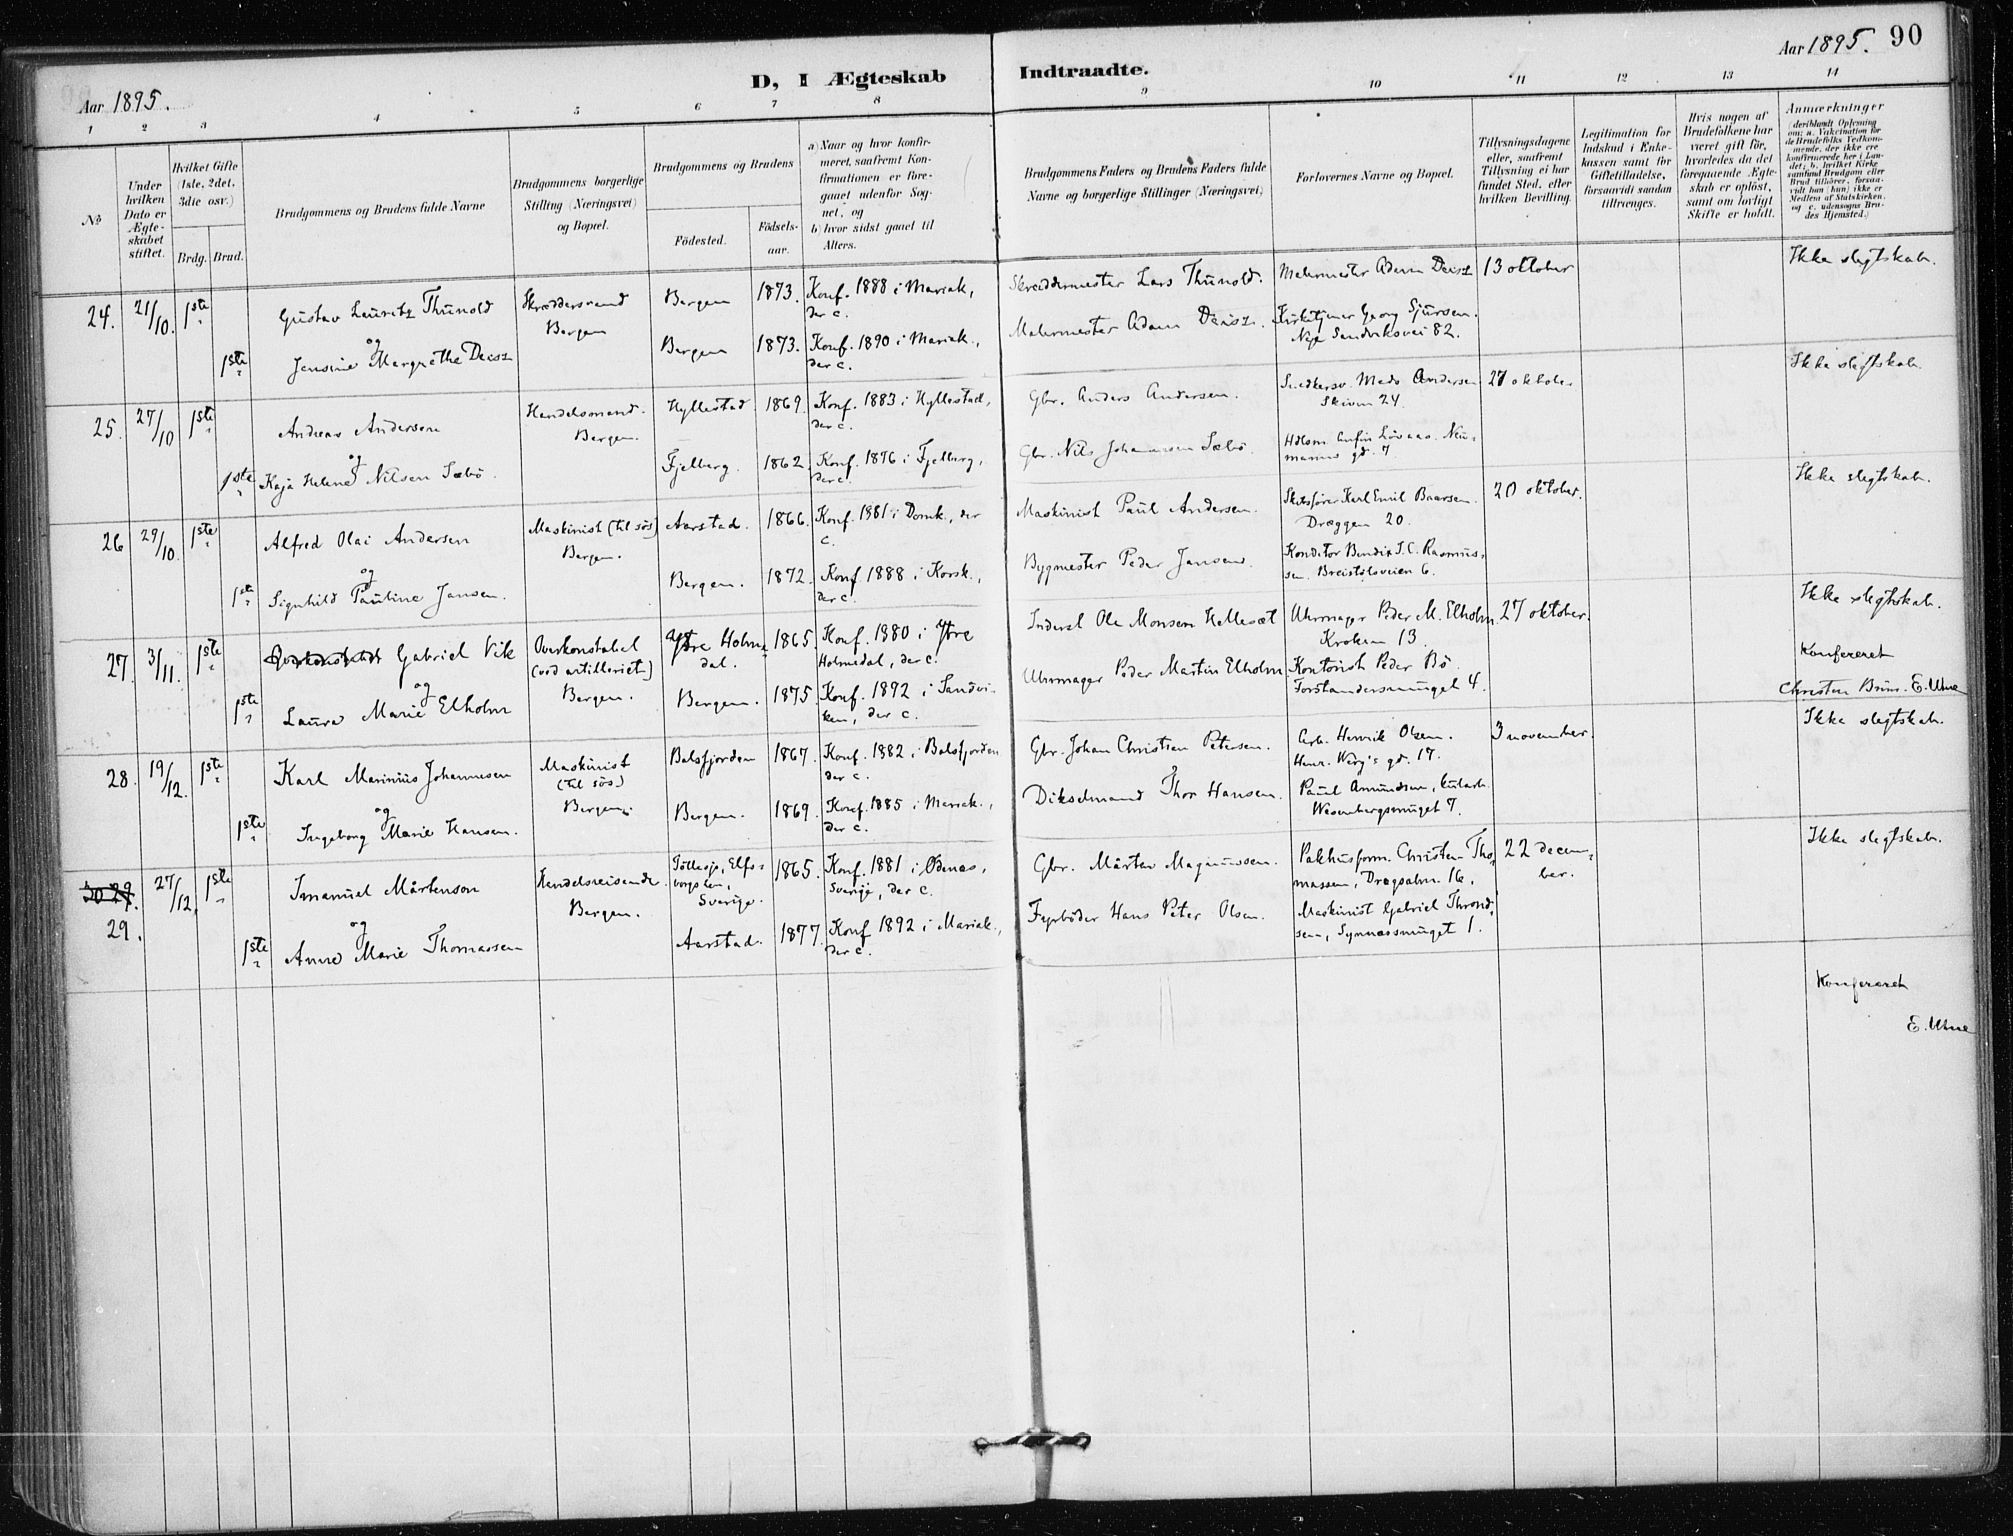 Aar 1895.
D, I Ægteskab
Indtraadte.
Aar 1895. 90
1 2 3 4 5 6 7 8 9 10 11 12 13 14
No
Under hvilken Dato er Ægteskabet stiftet.
Hvilket Gifte (1ste, 2det, 3die osv.)
Brdg. Brud.
Brudgommens og Brudens fulde Navne
Brudgommens borgerlige Stilling (Næringsvei) og Bopæl.
Brudgommens og Brudens
Fødested.
Fødsels-aar.
a) Naar og hvor konfirmeret, saafremt Konfirmationen er foregaaet udenfor Sognet, og
b) hvor sidst gaaet til Alters.
Brudgommens Faders og Brudens Faders fulde Navne og borgerlige Stillinger (Næringsvei)
Forlovernes Navne og Bopæl.
Tillysningsdagene eller, saafremt Tillysning ei har fundet Sted, efter hvilken Bevilling.
Legitimation for Indskud i Enkekassen samt for Giftetilladelse, forsaavidt saadan tiltrænges.
Hvis nogen af Brudefolkene har været gift før, hvorledes da det foregaaende Ægteskab er opløst, samt om lovligt Skifte er holdt.
Anmærkninger
(deriblandt Oplysning om: a. Vakcination for de Brudefolks Vedkommende, der ikke ere konfirmerede her i Landet; b. hvilket Kirkesamfund Brudgom eller Brud tilhører, forsaavidt han (hun) ikke er Medlem af Statskirken, og c. udensogns Brudes Hjemsted.)
24. 21/10. 1ste
Gustav Lauritz Thunold
Skræddersvend
Bergen
Bergen 1873. Konf. 1888 i Mariak, der c.
Skræddermester Lars Thunold.
Malermester Adam Deisz
13 oktober
Ikke slegtskab.
og
1ste Jensine Margrethe Deisz
Bergen 1873. Konf. 1890 i Mariak., der c.
Malermester Adam Deisz.
Kirketjener Georg Sjursen.
Nye Sandviksvei 82.
25. 27/10 1ste
Andreas Andersen
Handelsmand.
Bergen.
Hyllestad 1869. Konf. 1883 i Hyllestad, der c.
Gbr. Anders Andersen.
Snedkersv. Mads Andersen
Skivn 24.
27 oktober
Ikke slegtskab.
og
1ste Kaja Helene Nilsen Sæbø.
Fjelberg. 1862. Konf. 1876 i Fjelberg, der c.
Gbr. Nils Johannesen Sæbø.
Løvaas. Neumanns gd. 7
26 29/10. 1ste
Alfred Olai Andersen
Maskinist (til søs)
Bergen.
Aarstad. 1866. Konf. 1881 i Domk., der c.
Maskinist Paul Andersen.
Skibsfører Karl Emil Baarsen.
Dræggen 20.
20 oktober.
Ikke slegtskab.
og
1ste Signhild Pauline Jansen.
Bergen. 1872. Konf 1888 i Korsk., der c.
Bygmester Peder Jansen.
Konditor Bendix J. C. Rasmussen. Breistølsveien 6.
27. 3/11. 1ste
Overkonstabel Gabriel Vik
Overkonstabel
(ved artilleriet)
Bergen.
Ytre Holmedal. 1865. Konf. 1880 i Ytre Holmedal, der c.
Inderst Ole Monsen Hellesæt
Uhrmager Peder M. Elholm.
Kroken 13.
27 oktober.
Ikke slegtskab.
og
1ste Laura Marie Elholm
Bergen. 1875. Konf. 1892 i Sandviken, der c.
Uhrmager Peder Martin Elholm
Kontorist Peder Bø.
Forstandersmuget 4.
Konfereret
Christen Brun. E. Utne
28. 19/12. 1ste
Karl Marinius Johannesen
Maskinist
(til søs)
Bergen.
Balsfjorden 1867. Konf. 1882 i Balsfjorden der c.
Gbr. Johan Christian Petersen.
Arb. Henrik Olsen.
Henr. Werg's gd. 17.
3 november.
Ikke slegtskab.
og
1ste Ingeborg Marie Hansen.
Bergen. 1869. Konf. 1885 i Mariak., der c.
Dikselmand Thor Hansen.
Paul Amundsen, kularb.
Wesenbergsmuget 7.
30 29. 27/12. 1ste
29.
Imanuel Mårtenson
Handelsreisende.
Bergen.
Tøllesjø, Elfsborgs len, Sverige. 1865. Konf. 1881 i Ødenæs, Sverige, der c.
Gbr. Mårten Magnussen.
Pakhusform. Christen Thomassen, Drægsalm. 16.
22 december.
Ikke slegtskab.
og
1ste Anne Marie Thomassen
Aarstad. 1877. Konf 1892 i Mariak., der c.
Fyrbøder Hans Peter Olsen.
Maskinist Gabriel Throndsen, Synnæssmuget 1.
Konfereret
E. Utne